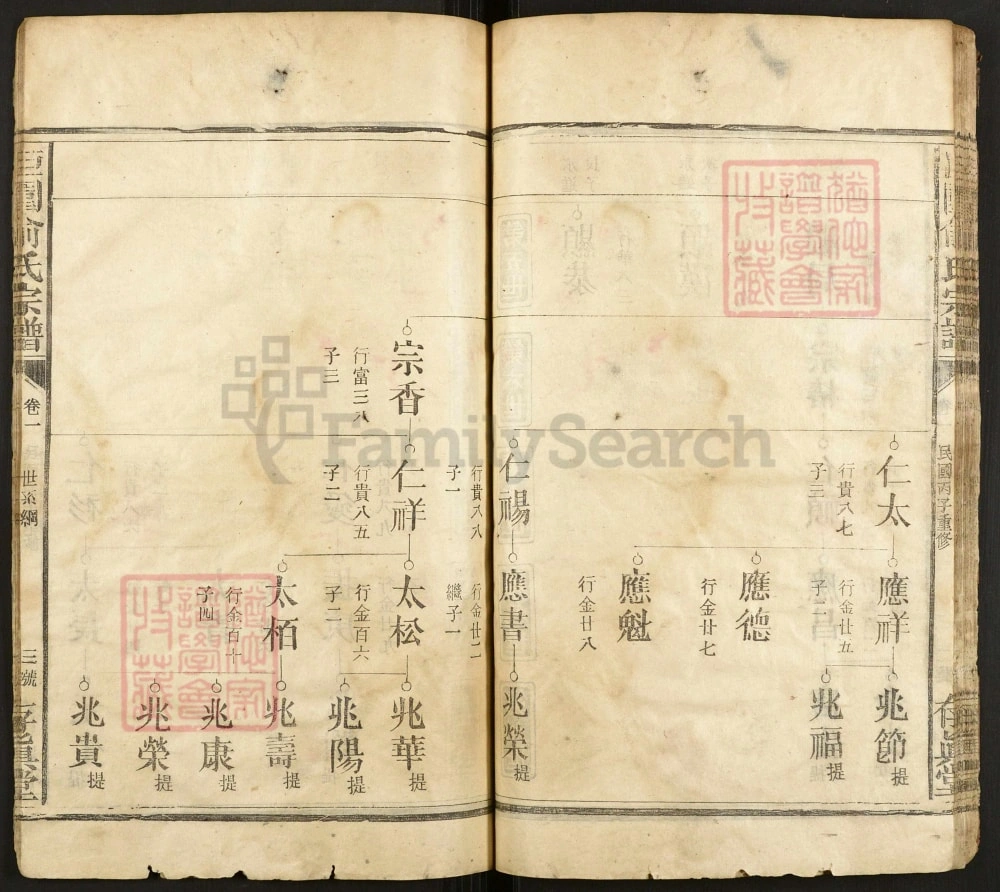 民國丙子重修
仁太
行貴八七
子三
應祥
行金廿五
子二
兆節
提
兆福
提
應德
行金廿七
應魁
行金廿八
仁禓
行貴八八
子一
應書
行金廿二
繼子一
兆榮
提
宗香
行富三八
子三
仁祥
行貴八五
子二
太松
行金百六
子二
兆華
提
兆陽
提
太栢
行金百十
子四
兆壽
提
兆康
提
兆榮
提
兆貴
提
俞氏宗譜
卷一
世系綱
三號
譜學會
收藏
FamilySearch